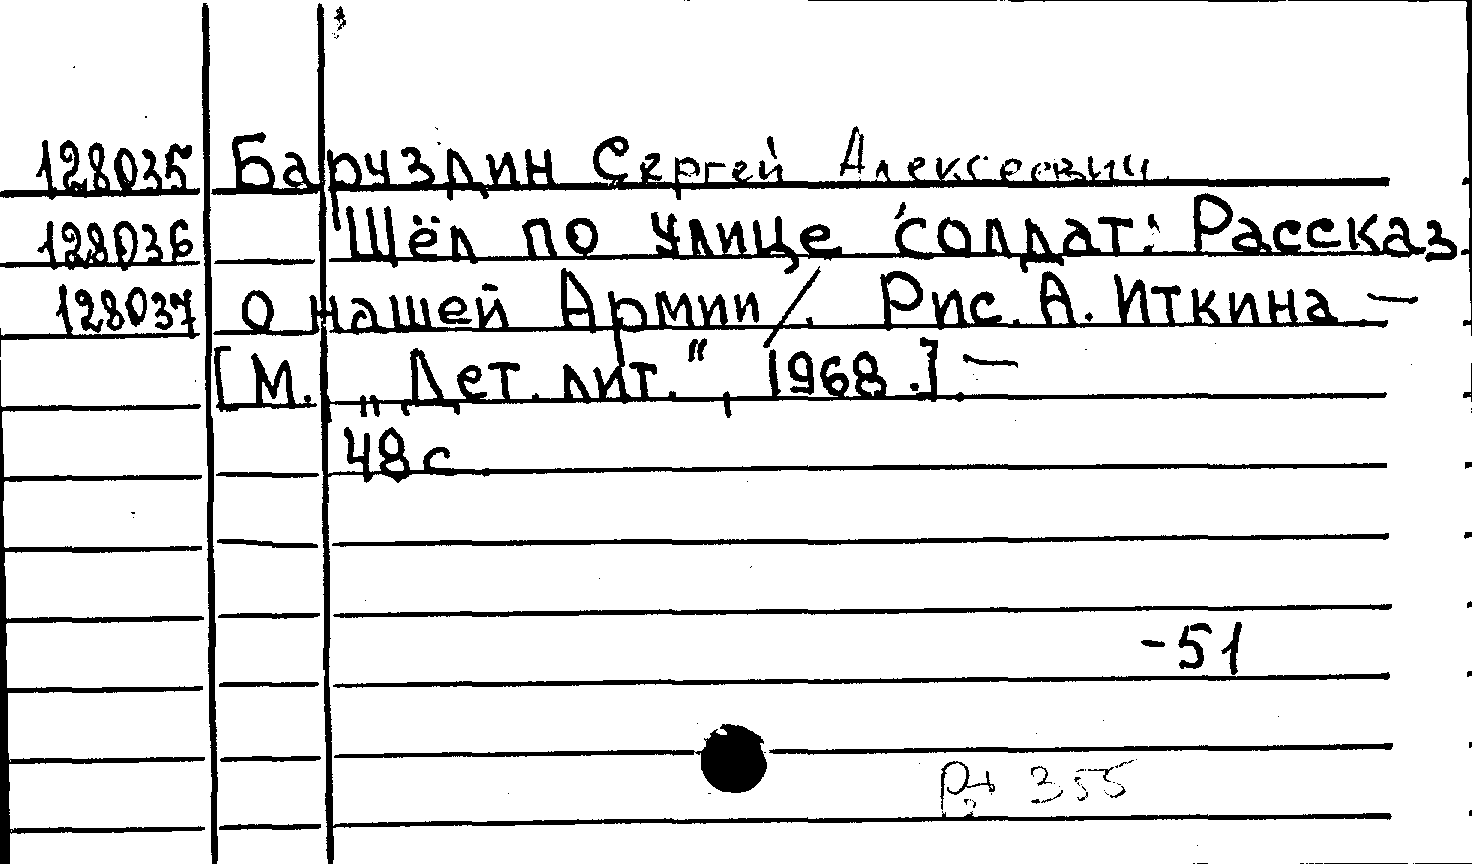 128035 Баруздин Сергей Алексеевич
128036 Шёл по улице солдат: Рассказ
128037 о нашей Армии/. Рис. А. Иткина. —
[М. „Дет. лит.", 1968.]. —
48 с.
-51
355